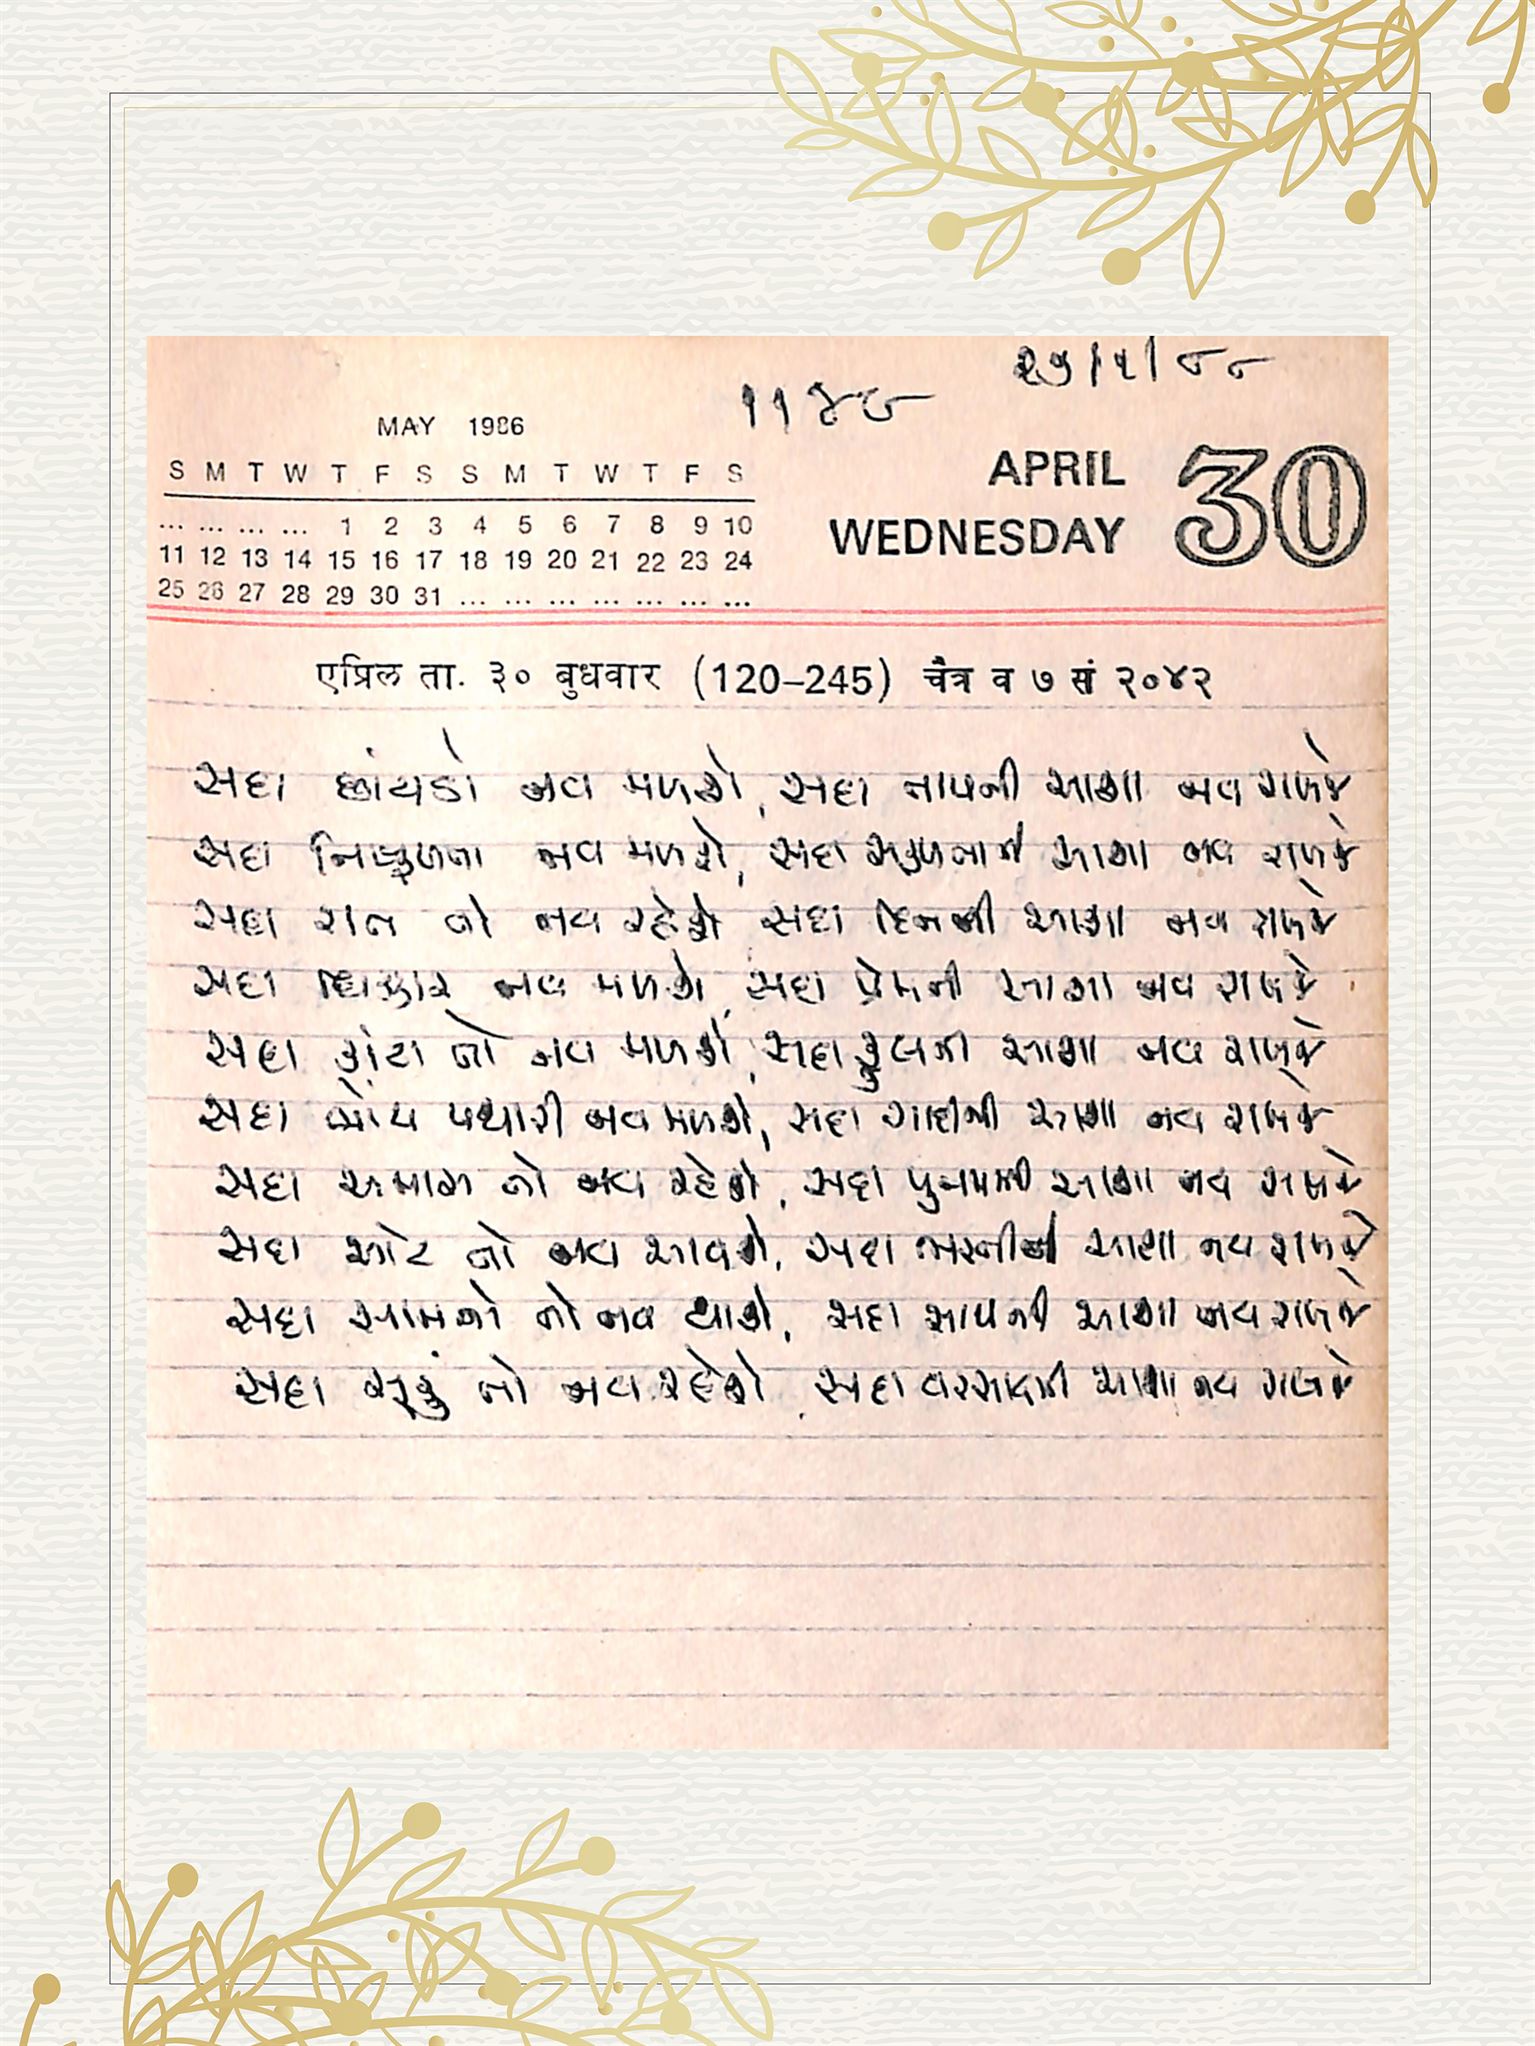 ૨૭/૧/૮૮
૧૧૪૮
MAY 1986
S M T W T F S S M T W T F S
... ... ... ... 1 2 3 4 5 6 7 8 9 10
11 12 13 14 15 16 17 18 19 20 21 22 23 24
25 26 27 28 29 30 31 ... ... ... ... ... ... ...
APRIL 30
WEDNESDAY
एप्रिल ता. ३० बुधवार (120–245) चैत्र व ७ सं २०४२
સદા છાંયડો નવ મળશે, સદા તાપની આશા નવ રાખજે
સદા નિષ્ફળતા નવ મળશે, સદા સફળતાની આશા નવ રાખજે
સદા રાત તો નવ રહેશે સદા દિનની આશા નવ રાખજે
સદા ધિક્કાર નવ મળશે, સદા પ્રેમની આશા નવ રાખજે
સદા કાંટા તો નવ મળશે, સદા ફુલની આશા નવ રાખજે
સદા ભોંય પથારી નવ મળશે, સદા ગાદીની આશા નવ રાખજે
સદા અમાસ તો નવ રહેશે, સદા પુનમની આશા નવ રાખજે
સદા ઓટ તો નવ આવશે, સદા ભરતીની આશા નવ રાખજે
સદા સામનો તો નવ થાશે, સદા સાથની આશા નવ રાખજે
સદા સૂકું તો નવ રહેશે, સદા વરસાદની આશા નવ રાખજે